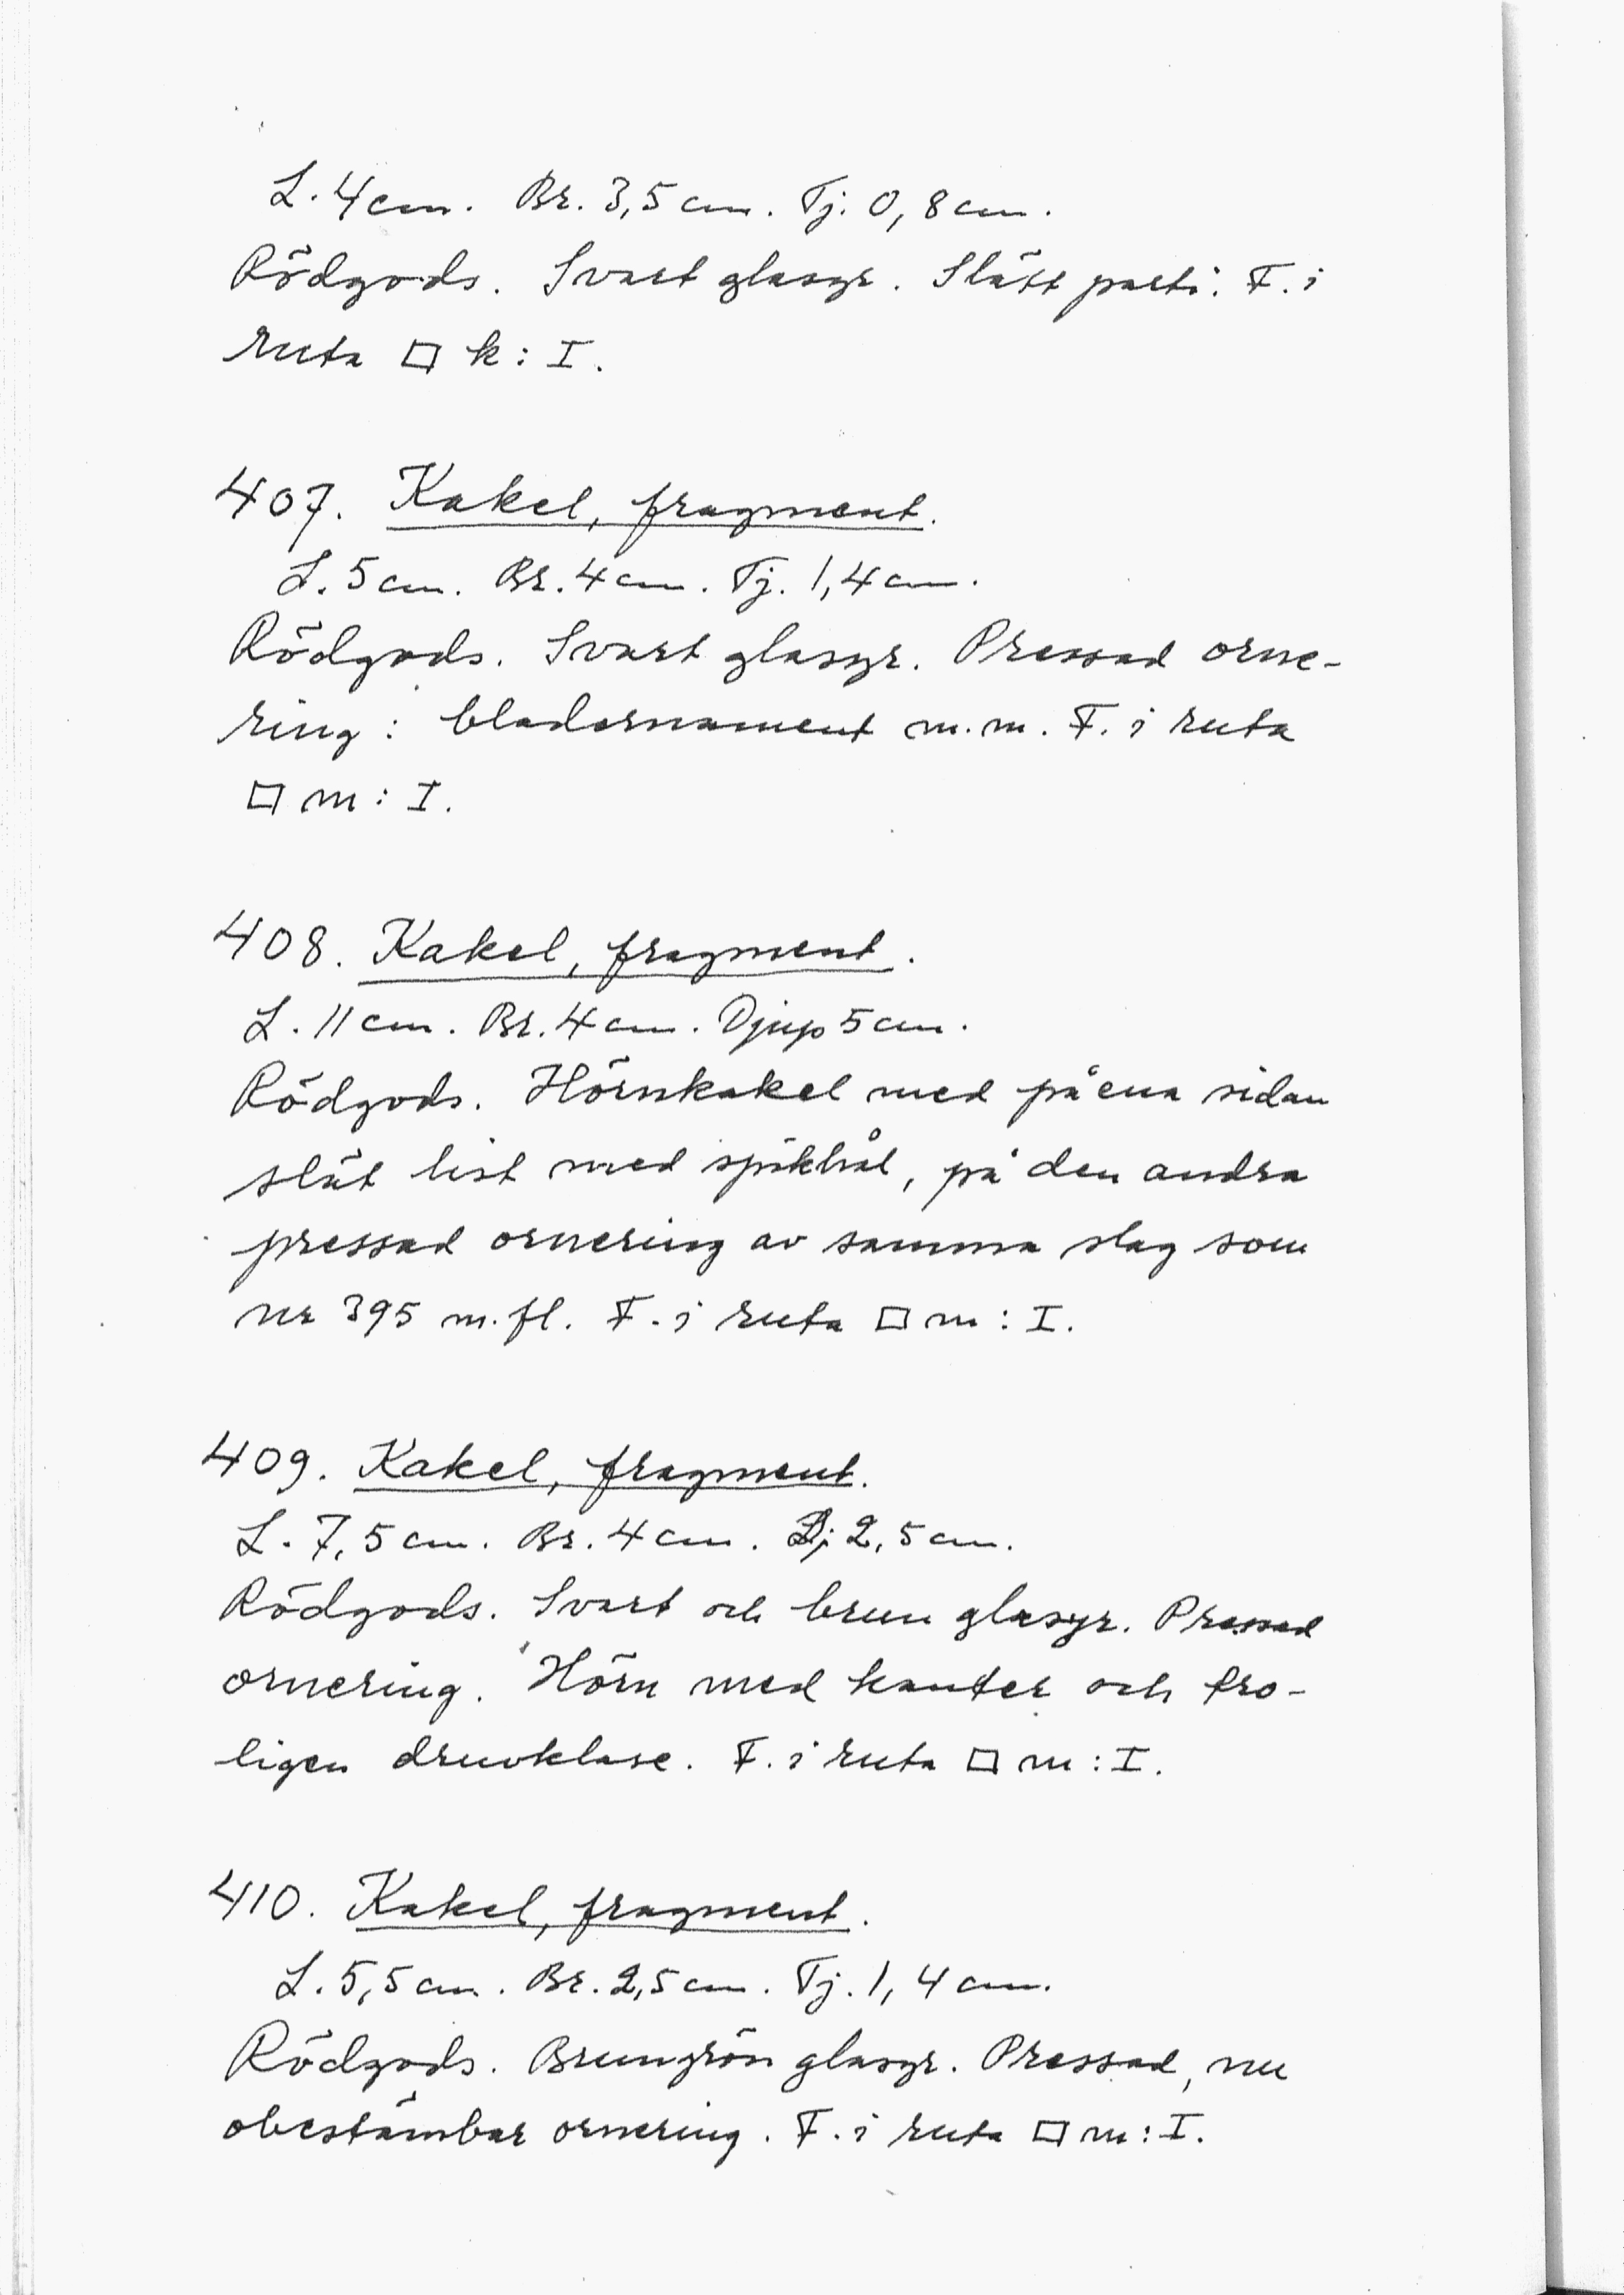 L. 4 cm. Br. 3,5 cm. Tj. 0,8 cm.
Rödgods. Svart glasyr. Slätt parti. F. i
ruta □ k : I.
407. Kakel, fragment.
L. 5 cm. Br. 4 cm. Tj. 1,4 cm.
Rödgods. Svart glasyr. Pressad orne-
ring : bladornament m.m. F. i ruta
□ m : I.
408. Kakel, fragment.
L. 11 cm. Br. 4 cm. Djup 5 cm.
Rödgods. Hörnkakel med på ena sidan
slät list med spikhål, på den andra
pressad ornering av samma slag som
nr 395 m.fl. F. i ruta □ m : I.
409. Kakel, fragment.
L. 7,5 cm. Br. 4 cm. 2,5 cm.
Rödgods. Svart och brun glasyr. Pressad
ornering. Hörn med kanter och tro-
ligen druvklase. F. i ruta □ m : I.
410. Kakel, fragment.
L. 5,5 cm. Br. 2,5 cm. Tj. 1,4 cm.
Rödgods. Brungrön glasyr. Pressad, nu
obestämbar ornering. F. i ruta □ m : I.